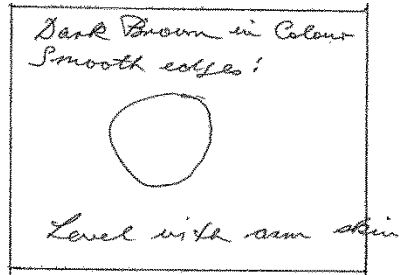 Dark Brown in Colour
Smooth edges!
Level with arm skin